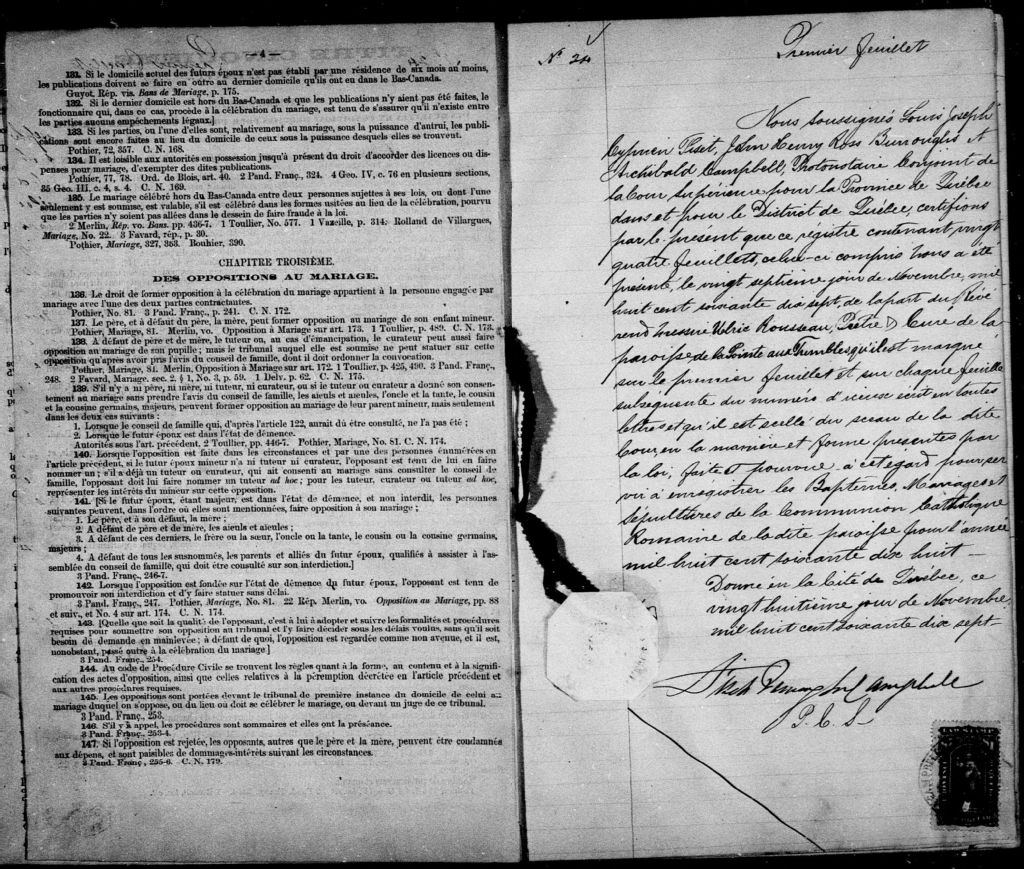 — 4 —
131. Si le domicile actuel des futurs époux n'est pas établi par une résidence de six mois au moins,
les publications doivent se faire en outre au dernier domicile qu'ils ont eu dans le Bas-Canada.
Guyot, Rép. vis. Bans de Mariage, p. 175.
132. Si le dernier domicile est hors du Bas-Canada et que les publications n'y aient pas été faites, le
fonctionnaire qui, dans ce cas, procède à la célébration du mariage, est tenu de s'assurer qu'il n'existe entre
les parties aucuns empêchements légaux.]
133. Si les parties, ou l'une d'elles sont, relativement au mariage, sous la puissance d'autrui, les publi-
cations sont encore faites au lieu du domicile de ceux sous la puissance desquels elles se trouvent.
Pothier, 72, 357. C. N. 168.
134. Il est loisible aux autorités en possession jusqu'à présent du droit d'accorder des licences ou dis-
penses pour mariage, d'exempter des dites publications.
Pothier, 77, 78. Ord. de Blois, art. 40. 2 Pand. Franç., 324. 4 Geo. IV, c. 76 en plusieurs sections,
35 Geo. III, c. 4, s. 4. C. N. 169.
135. Le mariage célébré hors du Bas-Canada entre deux personnes sujettes à ses lois, ou dont l'une
seulement y est soumise, est valable, s'il est célébré dans les formes usitées au lieu de la célébration, pourvu
que les parties n'y soient pas allées dans le dessein de faire fraude à la loi.
2 Merlin, Rép. vo. Bans. pp. 436-7. 1 Toullier, No. 577. 1 Vazeille, p. 314. Rolland de Villargues,
Mariage, No. 22. 3 Favard, rép., p. 30.
Pothier, Mariage, 327, 353. Rouhier, 390.
CHAPITRE TROISIÈME.
DES OPPOSITIONS AU MARIAGE.
136. Le droit de former opposition à la célébration du mariage appartient à la personne engagée par
mariage avec l'une des deux parties contractantes.
Pothier, No. 81. 3 Pand. Franç., p. 241. C. N. 172.
137. Le père, et à défaut du père, la mère, peut former opposition au mariage de son enfant mineur.
Pothier, Mariage, 81. Merlin, vo. Opposition à Mariage sur art. 173. 1 Toullier, p. 489. C. N. 173.
138. A défaut de père et de mère, le tuteur ou, au cas d'émancipation, le curateur peut aussi faire
opposition au mariage de son pupille ; mais le tribunal auquel elle est soumise ne peut statuer sur cette
opposition qu'après avoir pris l'avis du conseil de famille, dont il doit ordonner la convocation.
Pothier, Mariage, 81. Merlin, Opposition à Mariage sur art. 172. 1 Toullier, p. 425, 490. 3 Pand. Franç.,
248. 2 Favard, Mariage, sec. 2. § 1, No. 3, p. 59. 1 Delv. p. 62. C. N. 175.
139. S'il n'y a ni père, ni mère, ni tuteur, ni curateur, ou si le tuteur ou curateur a donné son consen-
tement au mariage sans prendre l'avis du conseil de famille, les aïeuls et aïeules, l'oncle et la tante, le cousin
et la cousine germains, majeurs, peuvent former opposition au mariage de leur parent mineur, mais seulement
dans les deux cas suivants :
1. Lorsque le conseil de famille qui, d'après l'article 122, aurait dû être consulté, ne l'a pas été ;
2. Lorsque le futur époux est dans l'état de démence.
Autorités sous l'art. précédent. 2 Toullier, pp. 446-7. Pothier, Mariage, No. 81. C. N. 174.
140. Lorsque l'opposition est faite dans les circonstances et par une des personnes énumérées en
l'article précédent, si le futur époux mineur n'a ni tuteur ni curateur, l'opposant est tenu de lui en faire
nommer un ; s'il a déjà un tuteur ou curateur, qui ait consenti au mariage sans consulter le conseil de
famille, l'opposant doit lui faire nommer un tuteur ad hoc ; pour les tuteur, curateur ou tuteur ad hoc,
représenter les intérêts du mineur sur cette opposition.
141. [Si le futur époux, étant majeur, est dans l'état de démence, et non interdit, les personnes
suivantes peuvent, dans l'ordre où elles sont mentionnées, faire opposition à son mariage ;
1. Le père, et à son défaut, la mère ;
2. A défaut de père et de mère, les aïeuls et aïeules ;
3. A défaut de ces derniers, le frère ou la sœur, l'oncle ou la tante, le cousin ou la cousine germains,
majeurs ;
4. A défaut de tous les susnommés, les parents et alliés du futur époux, qualifiés à assister à l'as-
semblée du conseil de famille, qui doit être consulté sur son interdiction.]
3 Pand. Franç., 246-7.
142. Lorsque l'opposition est fondée sur l'état de démence du futur époux, l'opposant est tenu de
promouvoir son interdiction et d'y faire statuer sans délai.
3 Pand. Franç., 247. Pothier, Mariage, No. 81. 22 Rép. Merlin, vo. Opposition au Mariage, pp. 88
et suiv., et No. 4 sur art. 174. C. N. 174.
143. [Quelle que soit la qualité de l'opposant, c'est à lui à adopter et suivre les formalités et procédures
requises pour soumettre son opposition au tribunal et l'y faire décider sous les délais voulus, sans qu'il soit
besoin de demande en mainlevée ; à défaut de quoi, l'opposition est regardée comme non avenue, et il est,
nonobstant, passé outre à la célébration du mariage.]
3 Pand. Franç., 254.
144. Au code de Procédure Civile se trouvent les règles quant à la forme, au contenu et à la signifi-
cation des actes d'opposition, ainsi que celles relatives à la péremption décrétée en l'article précédent et
aux autres procédures requises.
145. Les oppositions sont portées devant le tribunal de première instance du domicile de celui au
mariage duquel on s'oppose, ou du lieu où doit se célébrer le mariage, ou devant un juge de ce tribunal.
3 Pand. Franç., 253.
146. S'il y a appel, les procédures sont sommaires et elles ont la préséance.
3 Pand. Franç., 253-4.
147. Si l'opposition est rejetée, les opposants, autres que le père et la mère, peuvent être condamnés
aux dépens, et sont paisibles de dommages-intérêts suivant les circonstances.
3 Pand. Franç., 255-6. C. N. 179.
Premier feuillet
No 24
Nous soussignés Louis Joseph
Cyprien Fiset, John Henry Ross Burroughs &
Archibald Campbell, Protonotaire Conjoint de
la Cour Supérieure pour la Province de Québec
dans et pour le District de Québec, certifions
par le présent que ce registre contenant vingt
quatre feuillets, celui-ci compris nous a été
présenté, le vingt septieme jour de Novembre, mil
huit cent soixante dix sept, de la part du Révé
rend Messire Ulric Rousseau, Prêtre & Curé de la
paroisse de la Pointe aux Trembles, qu'il est marqué
sur le premier feuillet et sur chaque feuille
subséquente du numéro d'iceux écrit en toutes
lettres et qu'il est scellé du sceau de la dite
Cour, en la manière et forme présentes par
la loi, faite & pourvue à cet égard pour ser
vir à enregistrer les Baptemes, Mariages et
Sépultures de la Communion Catholique
Romaine de la dite paroisse pour l'année
mil huit cent soixante dix huit —
Donné en la Cité de Québec, ce
vingt huitième jour de Novembre
mil huit cent soixante dix sept —
Fiset Burroughs Campbell
P. C. S.